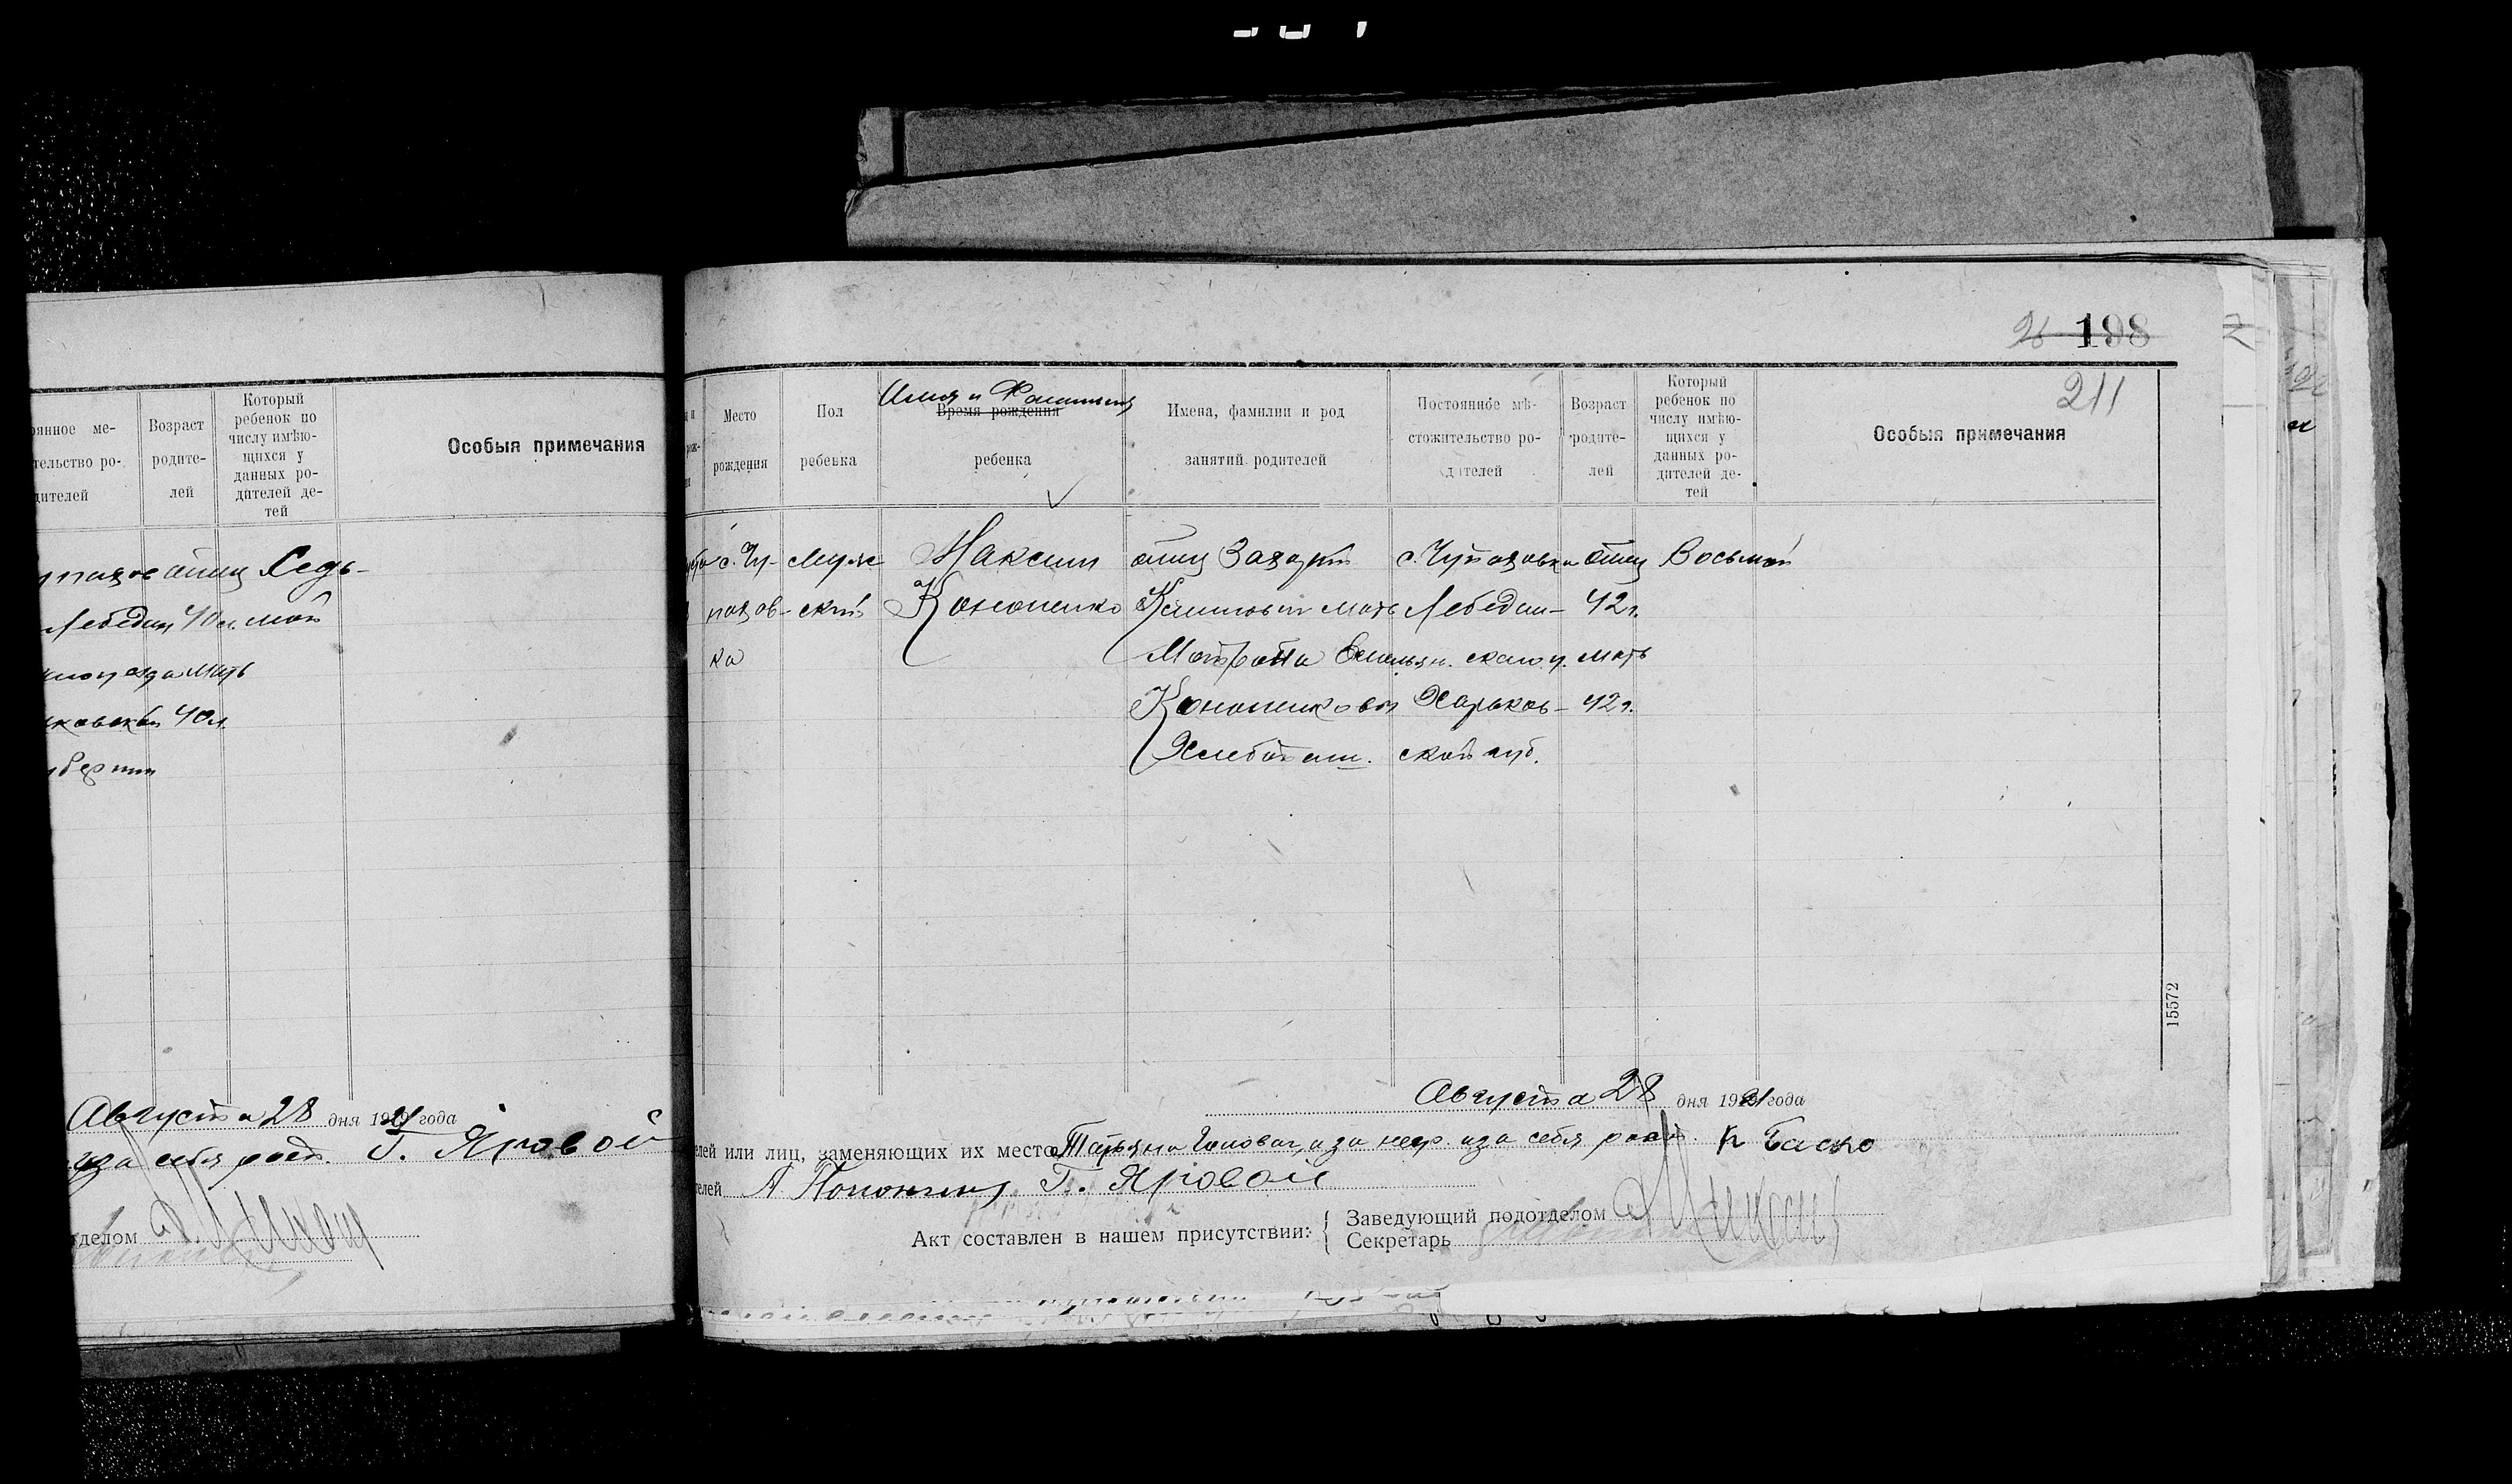 оянное ме-
тельство ро-
дителей
Возраст
родите-
лей
Который
ребенок по
числу имѣю-
щихся у
данных ро-
дителей де-
тей
Особыя примечания
отец Седь-
Лебедин 40 л. мой
мать
40 л.
Августа 28 дня 1921 года
за себя расп. Г. Яровой
тделом
26 198
211
Место
рождения
Пол
ребенка
Имя и Фамилия
Время рождения
ребенка
Имена, фамилии и род
занятий родителей
Постоянное мѣ-
стожительство ро-
дителей
Возраст
родите-
лей
Который
ребенок по
числу имѣю-
щихся у
данных ро-
дителей де-
тей
Особыя примечания
с. Чу- Муж Максим отец Захарий с. Чупаховка отец Восьмой
пахов- ский Кононенко мать Лебедин- 42 г.
ка Матрона Емельян. ского у. мать
Кононенковы Харьков- 42 г.
Хлебопаш. ской губ.
15572
Августа 28 дня 1921 года
елей или лиц, заменяющих их место Татьяна Головач, а за негр. и за себя расп. К Баско
телей А Кононенко Г. Яровой
Акт составлен в нашем присутствии:
Заведующий подотделом
Секретарь